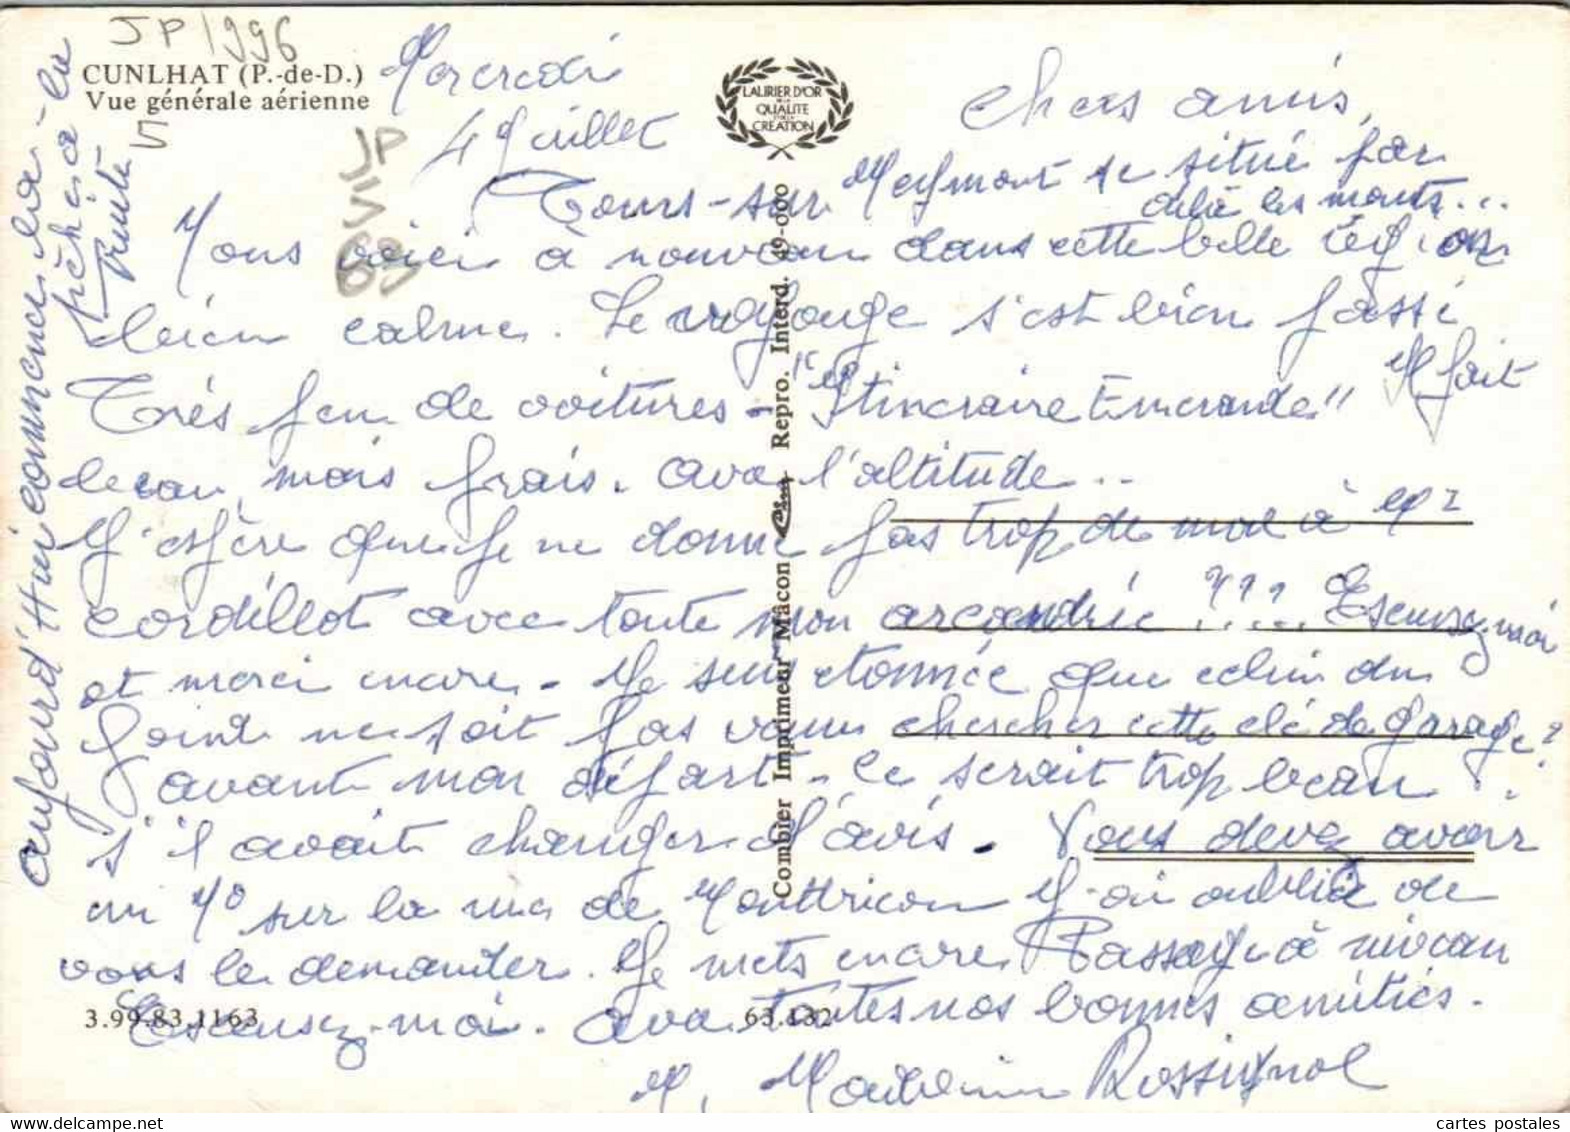 JP 1996
CUNLHAT (P.-de-D.)
Vue générale aérienne
V
JP
V
63
LAURIER D'OR
DE LA
QUALITÉ
CRÉATION
Mercredi
4 Juillet
Chers amis,
Tours-sur Meymont se situe par
delà les monts...
Nous voici à nouveau dans cette belle région
bien calme. Le voyage s'est bien passé
Très peu de voitures - "Itinéraire Emeraude" Il fait
beau, mais frais. avec l'altitude..
J'espère que je ne donne pas trop de mal à Mr
Cordillot avec toute mon ???... Excusez moi
et merci encore - Je suis étonnée que celui du
ne soit pas venu chercher cette clé de garage?
avant mon départ - ce serait trop beau
s'il avait changer d'avis. Vous devez avoir
un N° sur la rue de J'ai oublié de
vous le demander. Je mets encore Passage à niveau
Excusez-moi. avec toutes nos bonnes amitiés.
M. Rossignol
aujourd'hui commence la
pêche à la
truite
Combier Imprimeur Mâcon Cim Repro. Interd. 49-000
3.99.83.1163
63.132
cartes postales